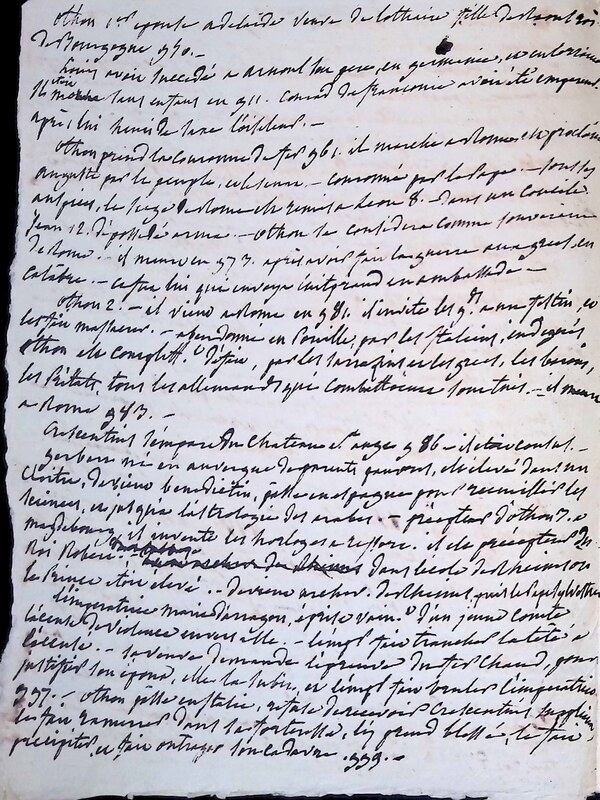 Othon 1er épouse adelaïde veuve de lothaire fille de Raoul roi
de Bourgogne 950. —
Louis avoit succedé a arnoul son pere, en germanie, et en lorraine
il étoit mort sans enfans en 911. Conrad de franconie avoit été empereur
après lui henri de saxe l'oiseleur. —
Othon prend la couronne de fer 961. il marche a rome, est proclamé
auguste par le peuple, et le senat. — couronné par le pape —
le siege de rome est remis a leon 8. — dans un concile
Jean 12. dépossédé — Othon se considera comme souverain
de Rome. — il meurt en 973. après avoir fait la guerre aux grecs, en
Calabre. — ce fut lui qui envoya luitprand en ambassade —
Othon 2. — il vient a Rome en 981. il invite les gds a un festin, et
les fait massacrer. — abandonné en Pouille, par les italiens, indignés
Othon est complettt défait, par les sarrasins et les grecs, les barons,
les Prélats, tous les allemands qui combattoient sont tués. — il meurt
a Rome 983. —
Crescentius s'empare du chateau st ange 986 — il étoit consul. —
gerbert né en auvergne de parents pauvres, est elevé dans un
Cloitre, devient benedictin, passe en espagne pour recueillir les
sciences, et jusque l'astrologie des arabes. — précepteur d'othon 3. a
magdebourg, il invente les horloges a ressort. il est precepteur du
Roi Robert. — dans l'école de Rheims ou
le Prince étoit elevé. — devient archev. de Rheims, puis le pape Sylvestre
l'imperatrice marie d'arragon, éprise d'un jeune comte
l'accuse de violence envers elle. — l'empr fait trancher la tete a
l'accusé — sa veuve demande l'épreuve du fer chaud, pour
justifier son époux, elle la subit, et l'empr fait bruler l'imperatrice
997. — Othon passe en italie, refuse de recevoir Crescentius suppliant
le fait ramener dans sa forteresse, l'y prend blessé, le fait
précipiter, et fait outrager son cadavre. 999. —